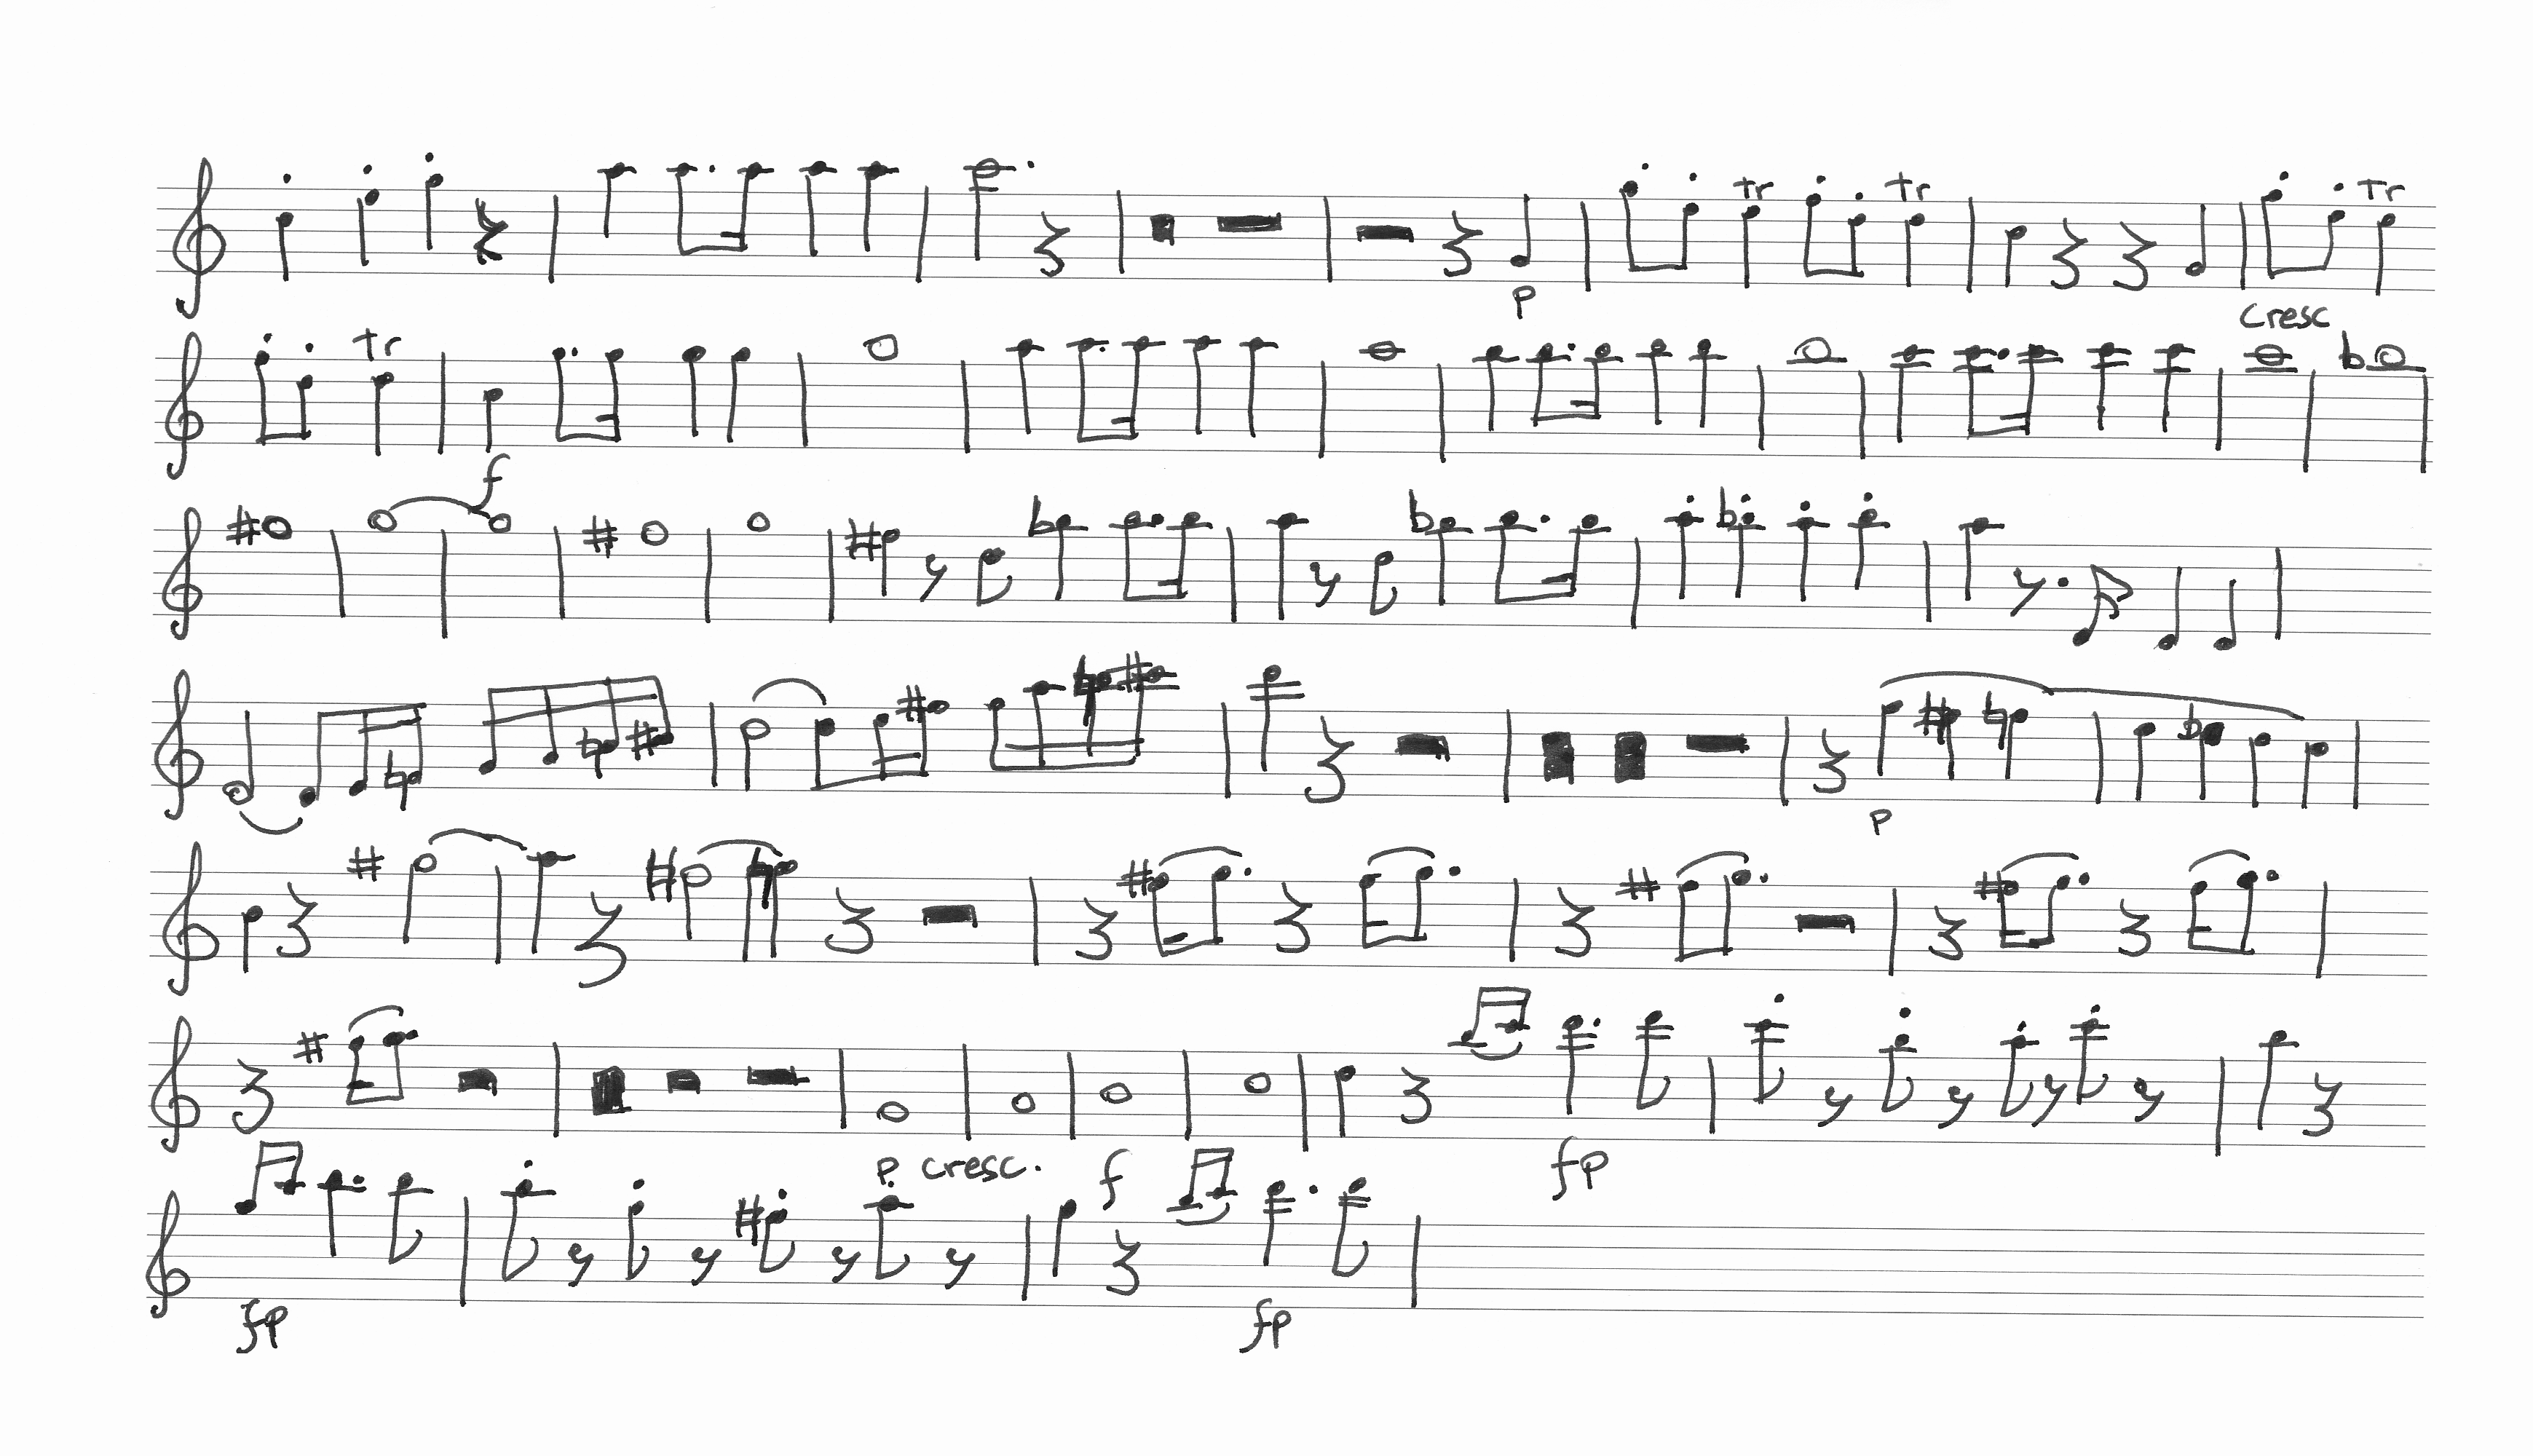 tr tr tr
p cresc
tr
f
p
fp
p cresc. f
fp fp